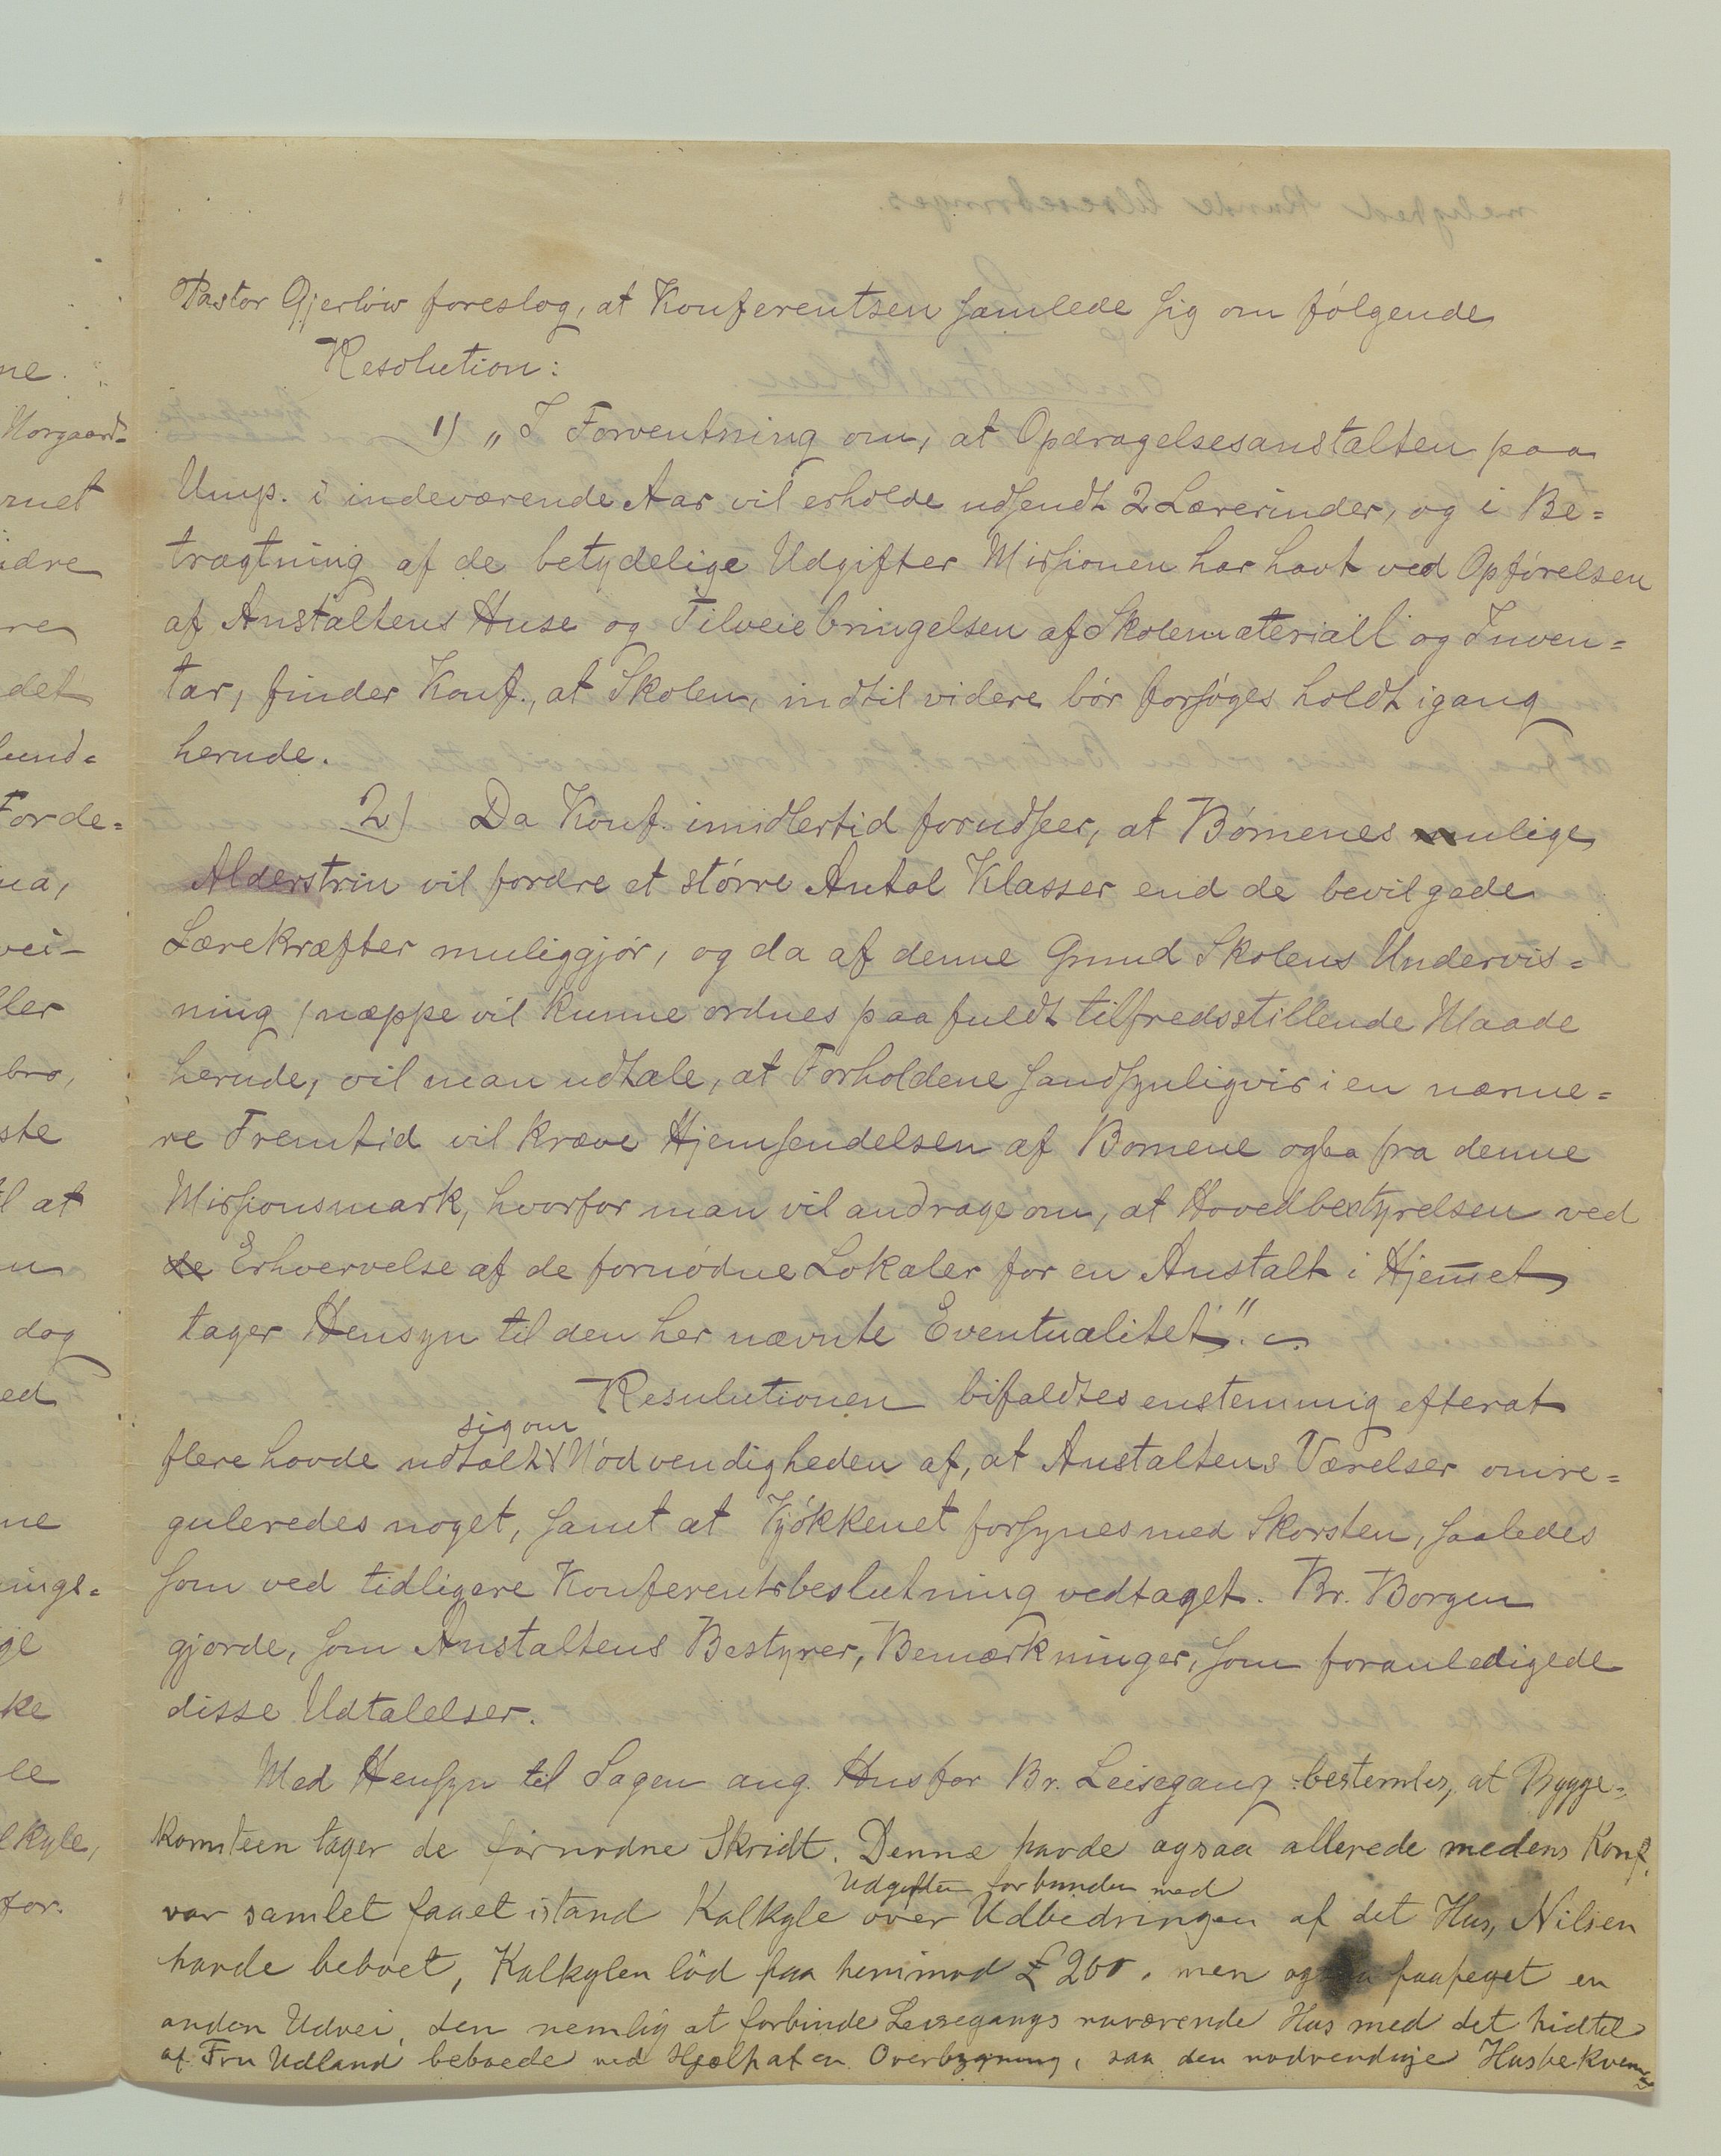 Pastor Gjerløw foreslog, at Konferentsen samlede sig om følgende
Resolution:
1) „I Forventning om, at Opdragelsesanstalten paa
Ump. i indeværende Aar vil erholde udsendt 2 Lærerinder, og i Be=
tragtning af de betydelige Udgifter Missionen har havt ved Opførelsen
af Anstaltens Huse og Tilveiebringelsen af Skolemateriall og Inven=
tar, finder Konf., at Skolen, indtil videre bør forsøges holdt igang
herude.
2) Da Konf. imidlertid forudseer, at Børnenes mulige
Alderstrin vil fordre et større Antal Klasser end de bevilgede
Lærekræfter muliggjør, og da af denne Grund Skolens Undervis=
ning næppe vil kunne ordnes paa fuldt tilfredsstillende Maade
herude, vil man udtale, at Forholdene sandsynligvis i en nærme=
re Fremtid vil kræve Hjemsendelsen af Børnene ogsaa fra denne
Missionsmark, hvorfor man vil andrage om, at Hovedbestyrelsen ved
de Erhvervelse af de fornødne Lokaler for en Anstalt i Hjem̅et
tager Hensyn til den her nævnte Eventualitet".
Resulutionen bifaldtes enstemmig efterat
sig om
flere havde udtalt Nødvendigheden af, at Anstaltens Værelser omre=
guleredes noget, samt at Kjøkkenet forsynes med Skorsten, saaledes
som ved tidligere Konferentsbeslutning vedtaget. Br. Borgen
gjorde, som Anstaltens Bestyrer, Bemærkninger, som foranledigede
disse Udtalelser.
Med Hensyn til Sagen ang. Hus for Br. Leisegang bestemtes, at Bygge=
komiteen tager de fornødne Skridt. Denne havde ogsaa allerede medens Konf.
Udgiften forbunden med
var samlet faaet istand Kalkyle over Udbedringen af det Hus, Nilsen
havde beboet, Kalkylen lød paa henimod £ 200. men ogsaa paapeget en
anden Udvei, den nemlig at forbinde Leisegangs nuværende Hus med det hidtil
af Fru Udland beboede ved Hjælp af en Overbygning, saa den nødvendige Husbekvem